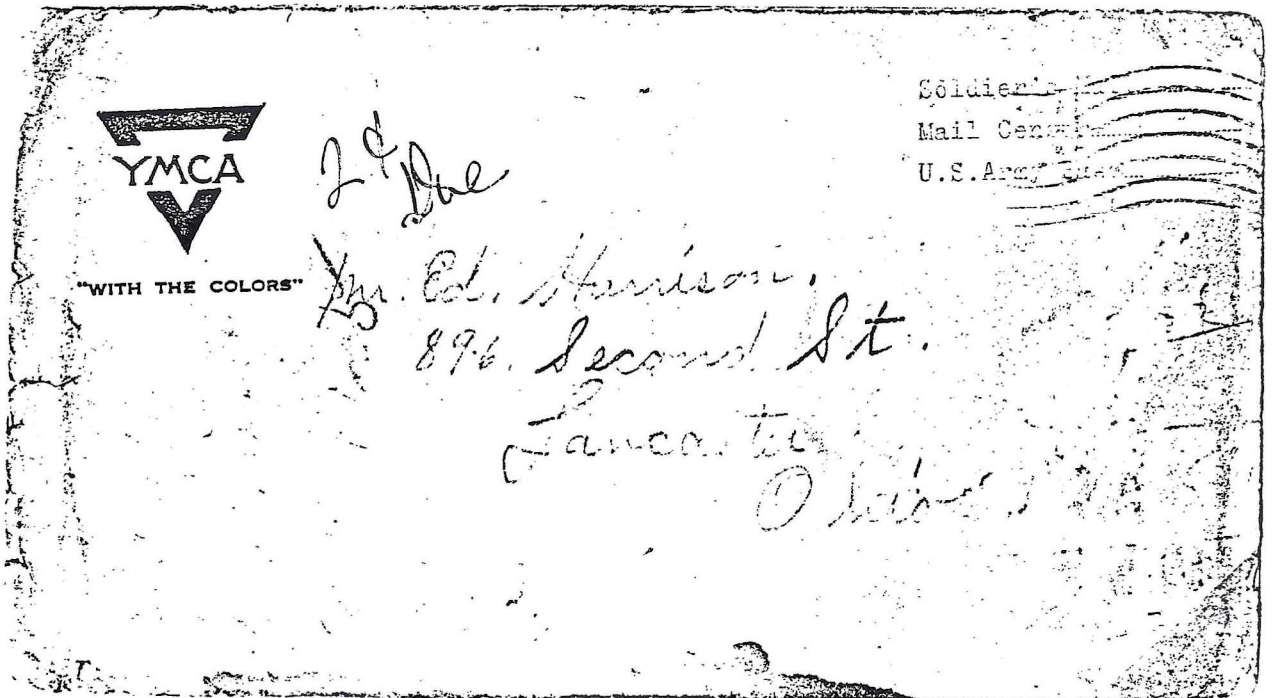 YMCA
"WITH THE COLORS"
2¢
Due
Soldier's
Mail
U.S. Army
Mr. Ed. Harrison,
896. Second St.
Lancaster
Ohio.